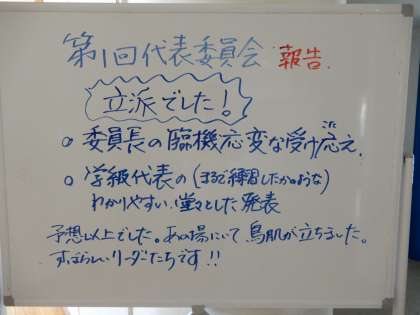 第1回代表委員会 報告
立派でした!
○ 委員長の臨機応変な受け応え(こた)
○ 学級代表の(まるで練習したかのような)
わかりやすい、堂々とした発表
予想以上でした。あの場にいて鳥肌が立ちました。
すばらしいリーダーたちです!!